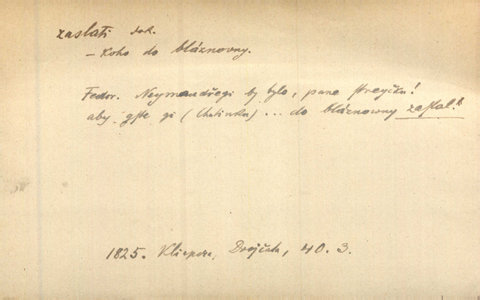 zaslati dok.
– Koho do bláznovny.
Fedor. Neymaudřegi by bylo, pane strýčku!
aby gste gi (Chalinku) ... do bláznowny zaslal."
1825. Klicpera, Dvojčata, 40. 3.